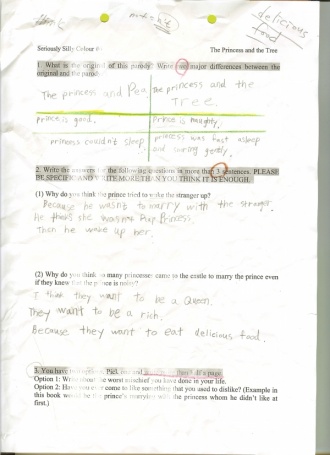 delicious
food
Seriously Silly Colour
The Princess and the Tree
1. What is the original of this parody? Write two major differences between the
original and the parody.
The princess and Pea
the princess and the
Tree.
prince is good.
prince is naughty.
princess couldn't sleep
princess was fast asleep
and snoring gently.
2. Write the answers for the following questions in more than 3 sentences. PLEASE
BE SPECIFIC AND WRITE MORE THAN YOU THINK IT IS ENOUGH.
(1) Why do you think the prince tried to wake the stranger up?
Because he wasn't to marry with the stranger.
He thinks she Princess.
Then he wake up her.
(2) Why do you think so many princesses came to the castle to marry the prince even
if they knew that the prince is noisy?
I think they want to be a Queen.
They want to be a rich.
Because they want to eat delicious food.
3. You have two options. Pick one and half a page.
Option 1: Write about the worst mischief you have done in your life.
Option 2: Have you ever come to like something that you used to dislike? (Example in
this book would be the prince's marrying with the princess whom he didn't like at
first.)